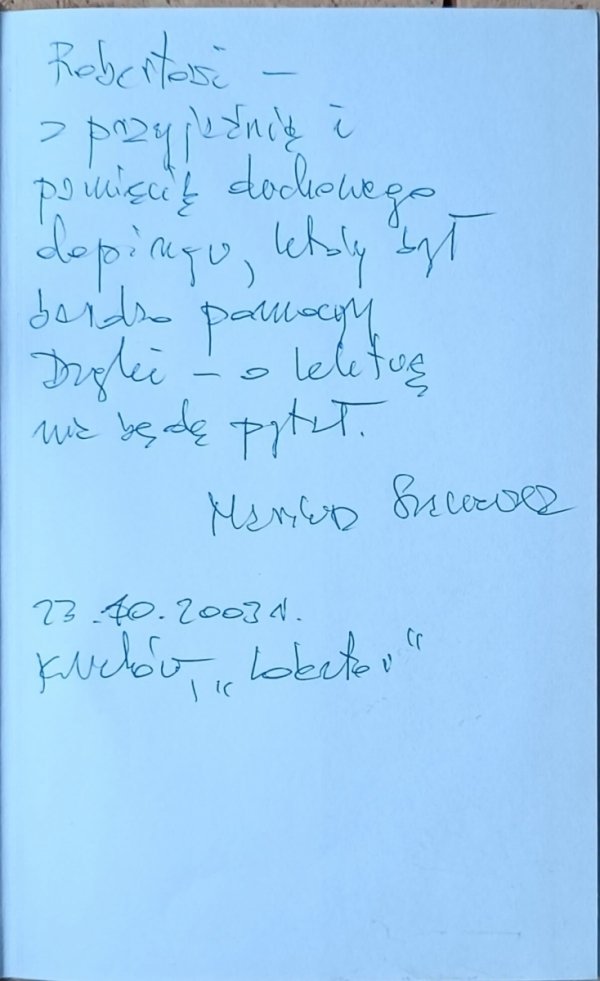 Robertowi –
z przyjaźnią i
pamięcią duchowego
dopingu, który był
bardzo pomocny
Dzięki – o lekturę
nie będę pytał.
23.10.2003 r.
Kraków, „Lokator"